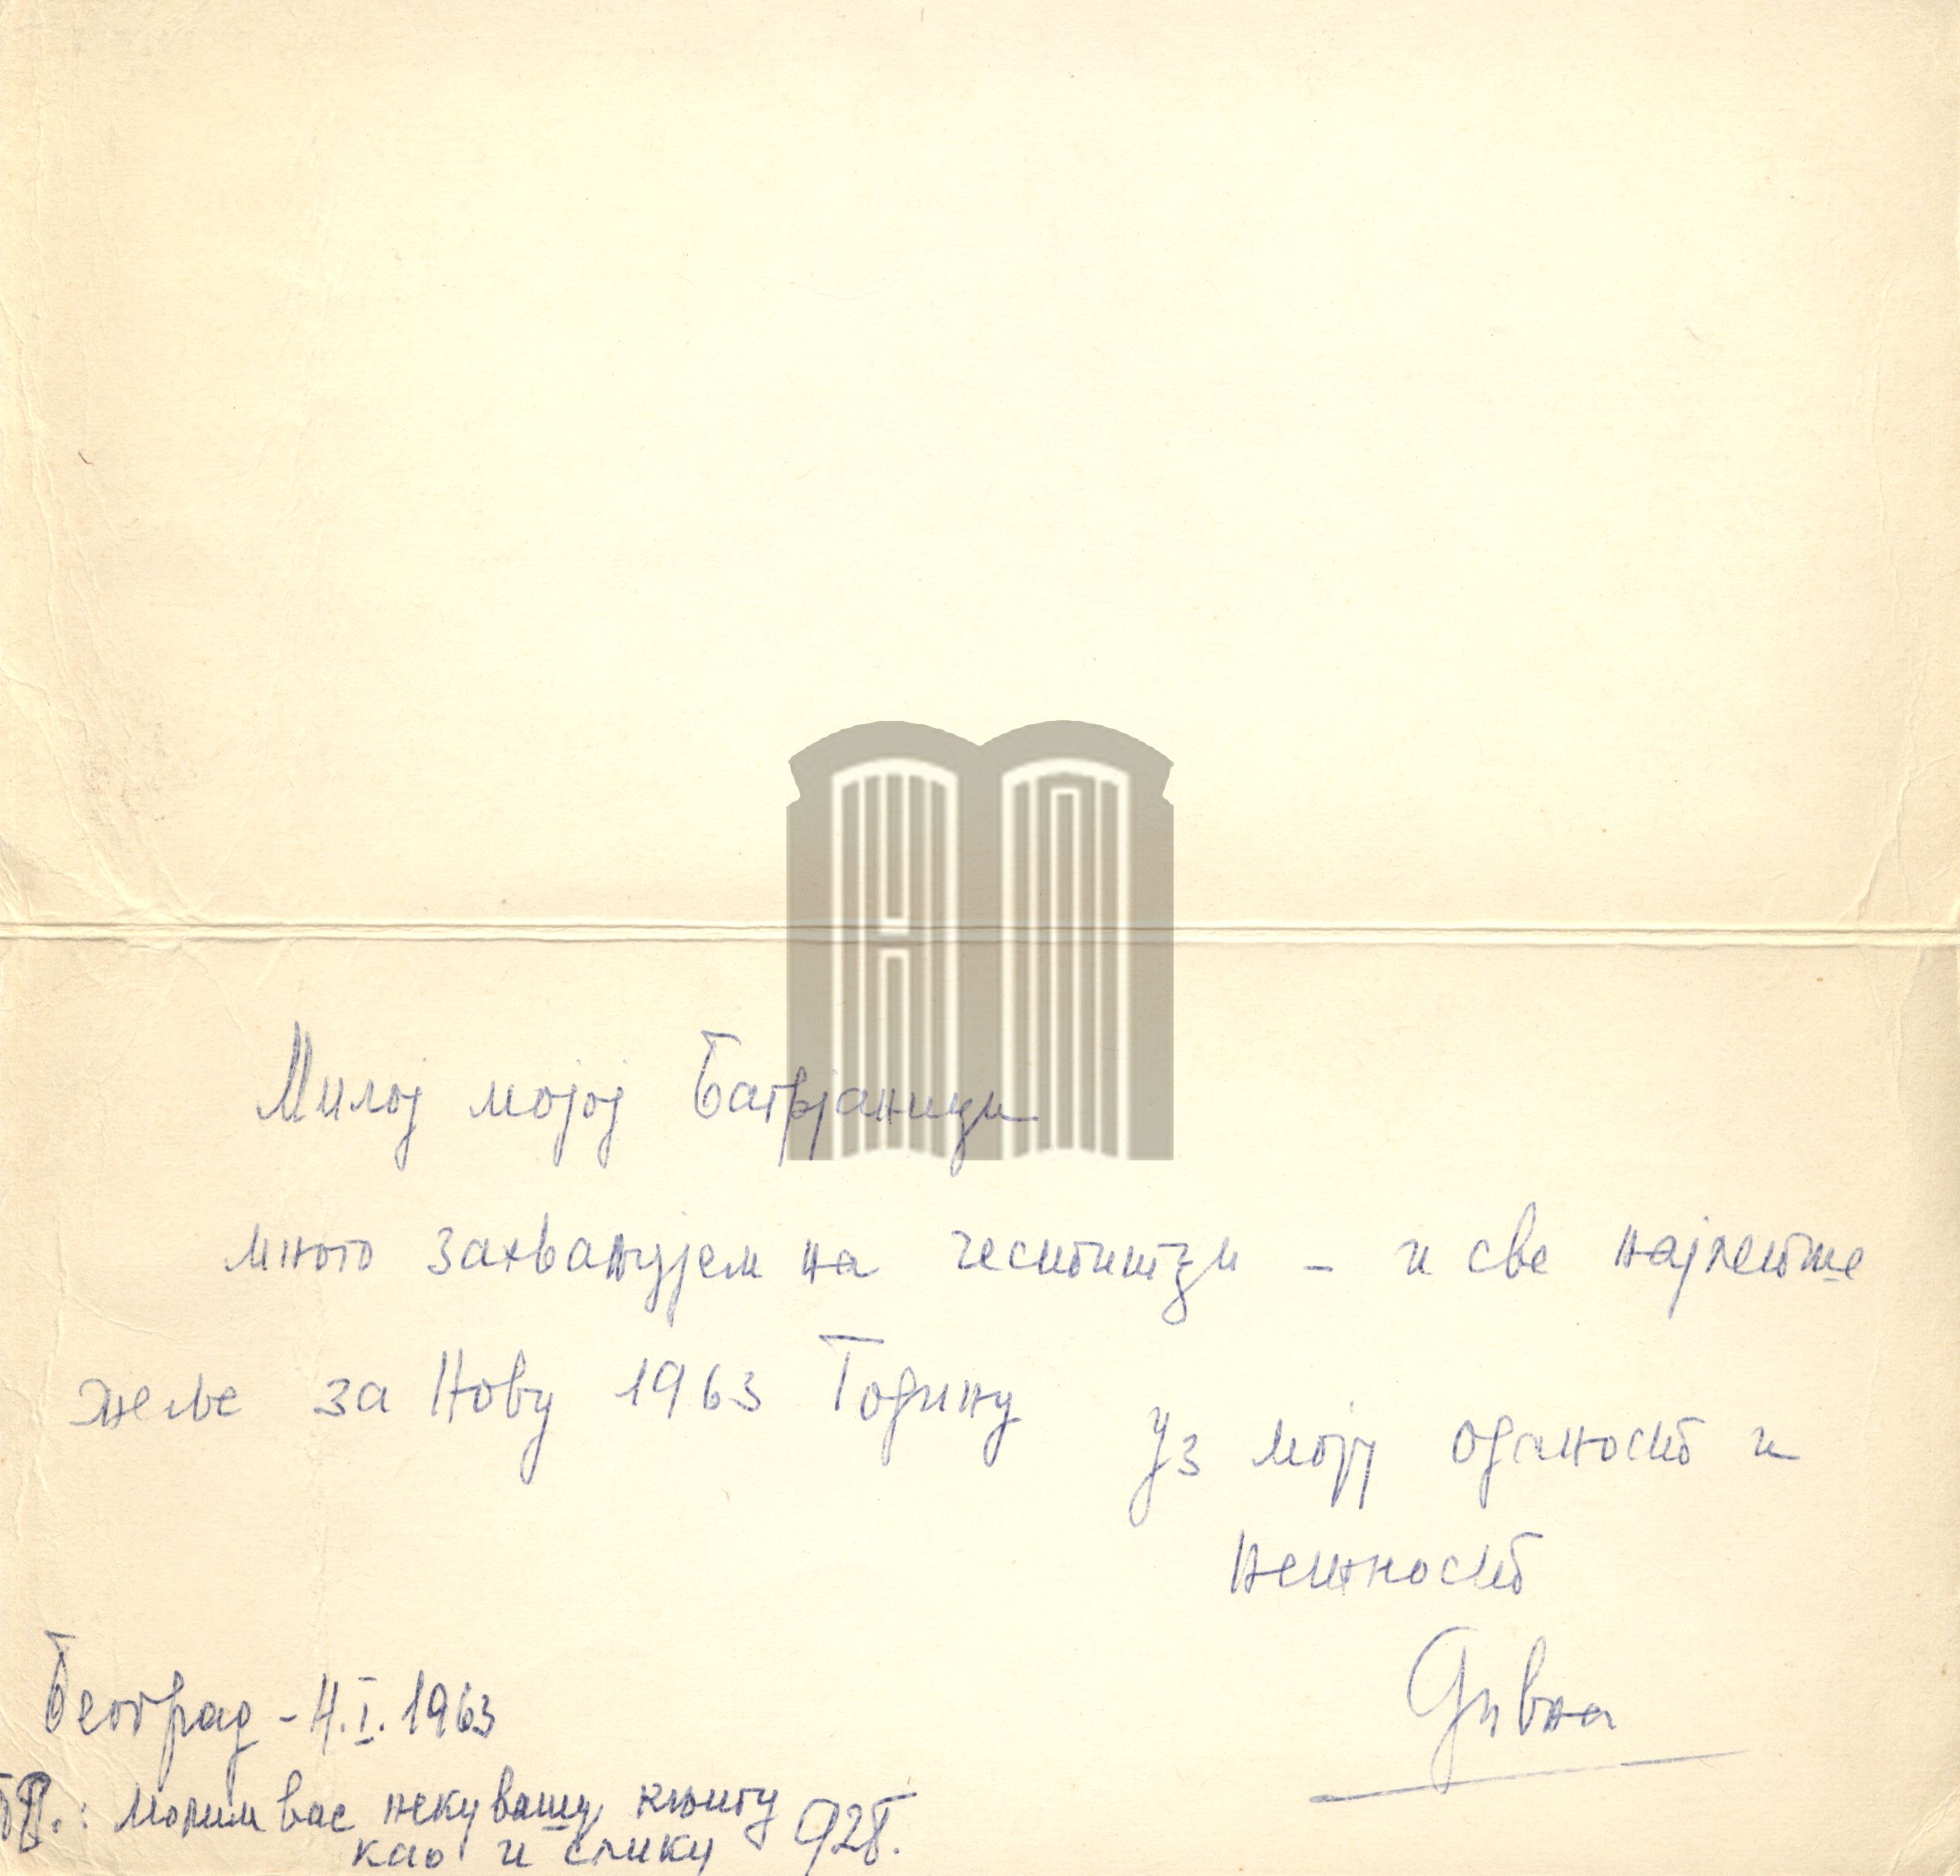 Милој мојој Багрјаници
много захваљујем на честитци – и све најлепше
жеље за Нову 1963 Годину
Уз моју оданост и
нежност
Дивна
Београд – 4.I.1963
молим вас неку вашу књигу
као и слику